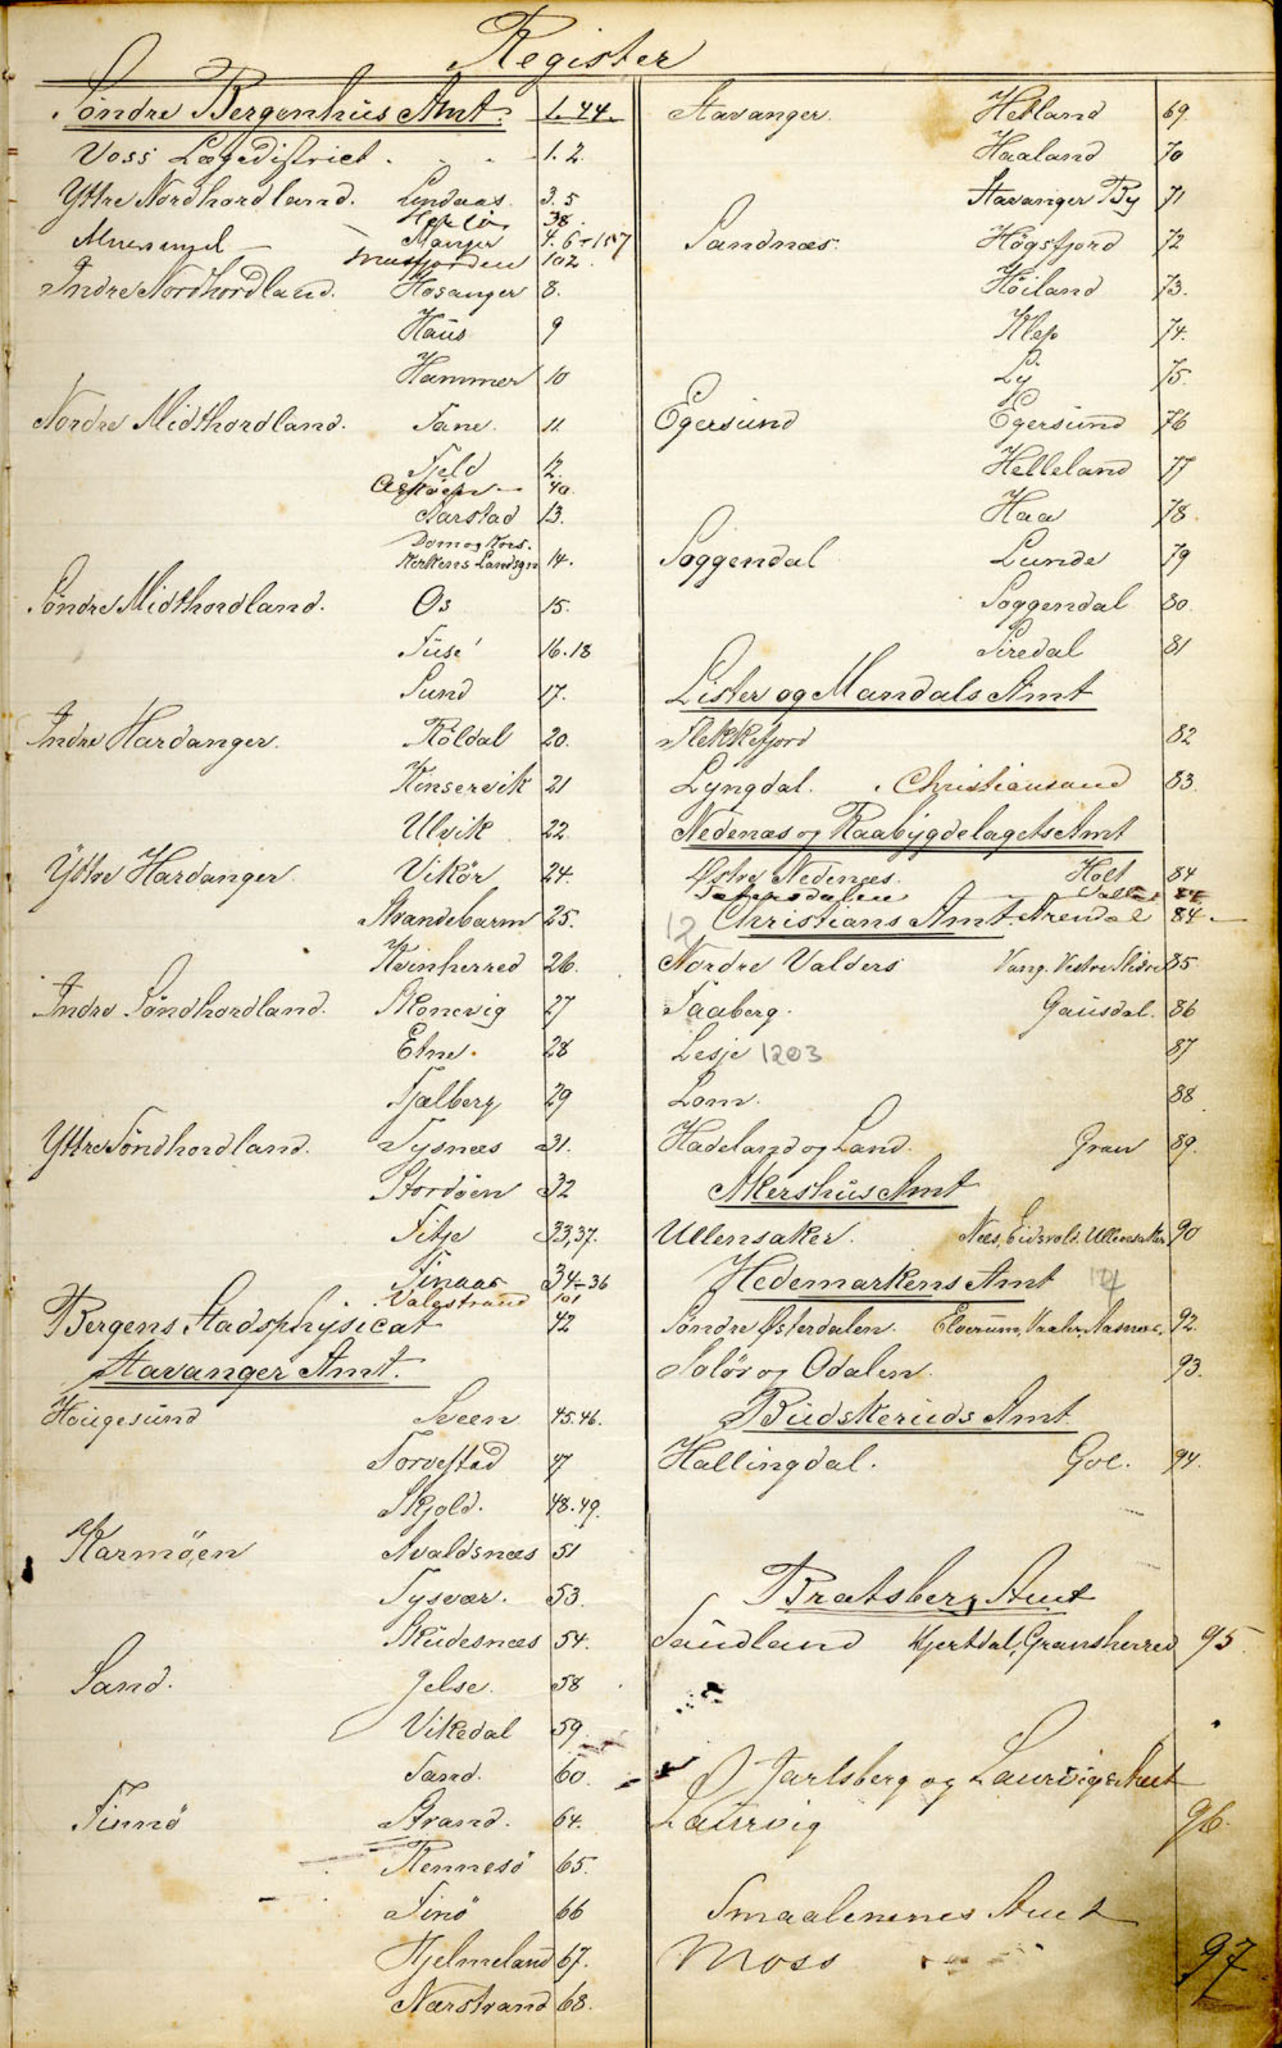 Register
Söndre Bergenhus Amt. 1.44.
Voss Lægedistrict . . . 1.2.
Yttre Nordhordland. Lindaas. 3.5
Herlö 38.
Manger 4.6+157
102.
Indre Nordhordland. Hosanger 8.
Haus 9
Hammer 10
Nordre Midthordland. Fane. 11.
Fjeld 12.
Askøen 40.
Aarstad 13.
Dom og Kors-
kirkens Landsgn 14.
Söndre Midthordland. Os 15.
Fuse 16.18
Sund 17.
Indre Hardanger. Röldal 20.
Kinservik 21
Ulvik 22
Yttre Hardanger. Vikör 24.
Strandebarm 25.
Kvinherred 26.
Indre Söndhordland. Skonevig 27
Etne. 28
Fjelberg 29
Yttre Söndhordland. Tysnæs 31.
Stordöen 32
Fitje 33,37.
Finaas 34-36
Valestrand 101
Bergens Stadsphysicat 42
Stavanger Amt.
Haugesund Sveen 45.46.
Torvestad 47
Skjold. 48.49.
Karmöen Avaldsnæs 51
Tysvær. 53.
Skudesnæs 54.
Sand. Jelse. 58
Vikedal 59
Sand. 60.
Finnö Strand. 64.
Rennesö 65.
Finö 66
Hjelmeland 67.
Nærstrand 68.
Stavanger. Hetland 69
Haaland 70
Stavanger By 71
Sandnæs. Högsfjord 72
Höiland 73.
Klep 74.
Ly 75.
Egersund Egersund 76
Helleland 77
Haa 78
Soggendal Lunde 79
Soggendal 80.
Siredal 81
Lister og Mandals Amt
Flekkefjord 82
Lyngdal. Christiansand 83.
Nedenæs og Raabygdelagets Amt
Østre Nedenæs. Holt 84
Sætersdalen Valle
12 Christians Amt. Arendal 84
Nordre Valders Vang. Vestre Slidre 85.
Faaberg. Gausdal. 86
Lesje 1203 87
Lom. 88
Hadeland og Land. Gran 89.
Akershus Amt
Ullensaker. Næs, Eidsvold. Ullensaker 90
Hedemarkens Amt
Söndre Østerdalen. Elverum, Vaaler, Aasnæs, 92.
Solör og Odalen. 93.
Budskeruds Amt.
Hallingdal. Gol. 94.
Bratsberg Amt
Saudland Hjertdal, Gransherred 95.
Jarlsberg og Laurvigs Amt
Laurvig 96.
Smaalenenes Amt
Moss 97